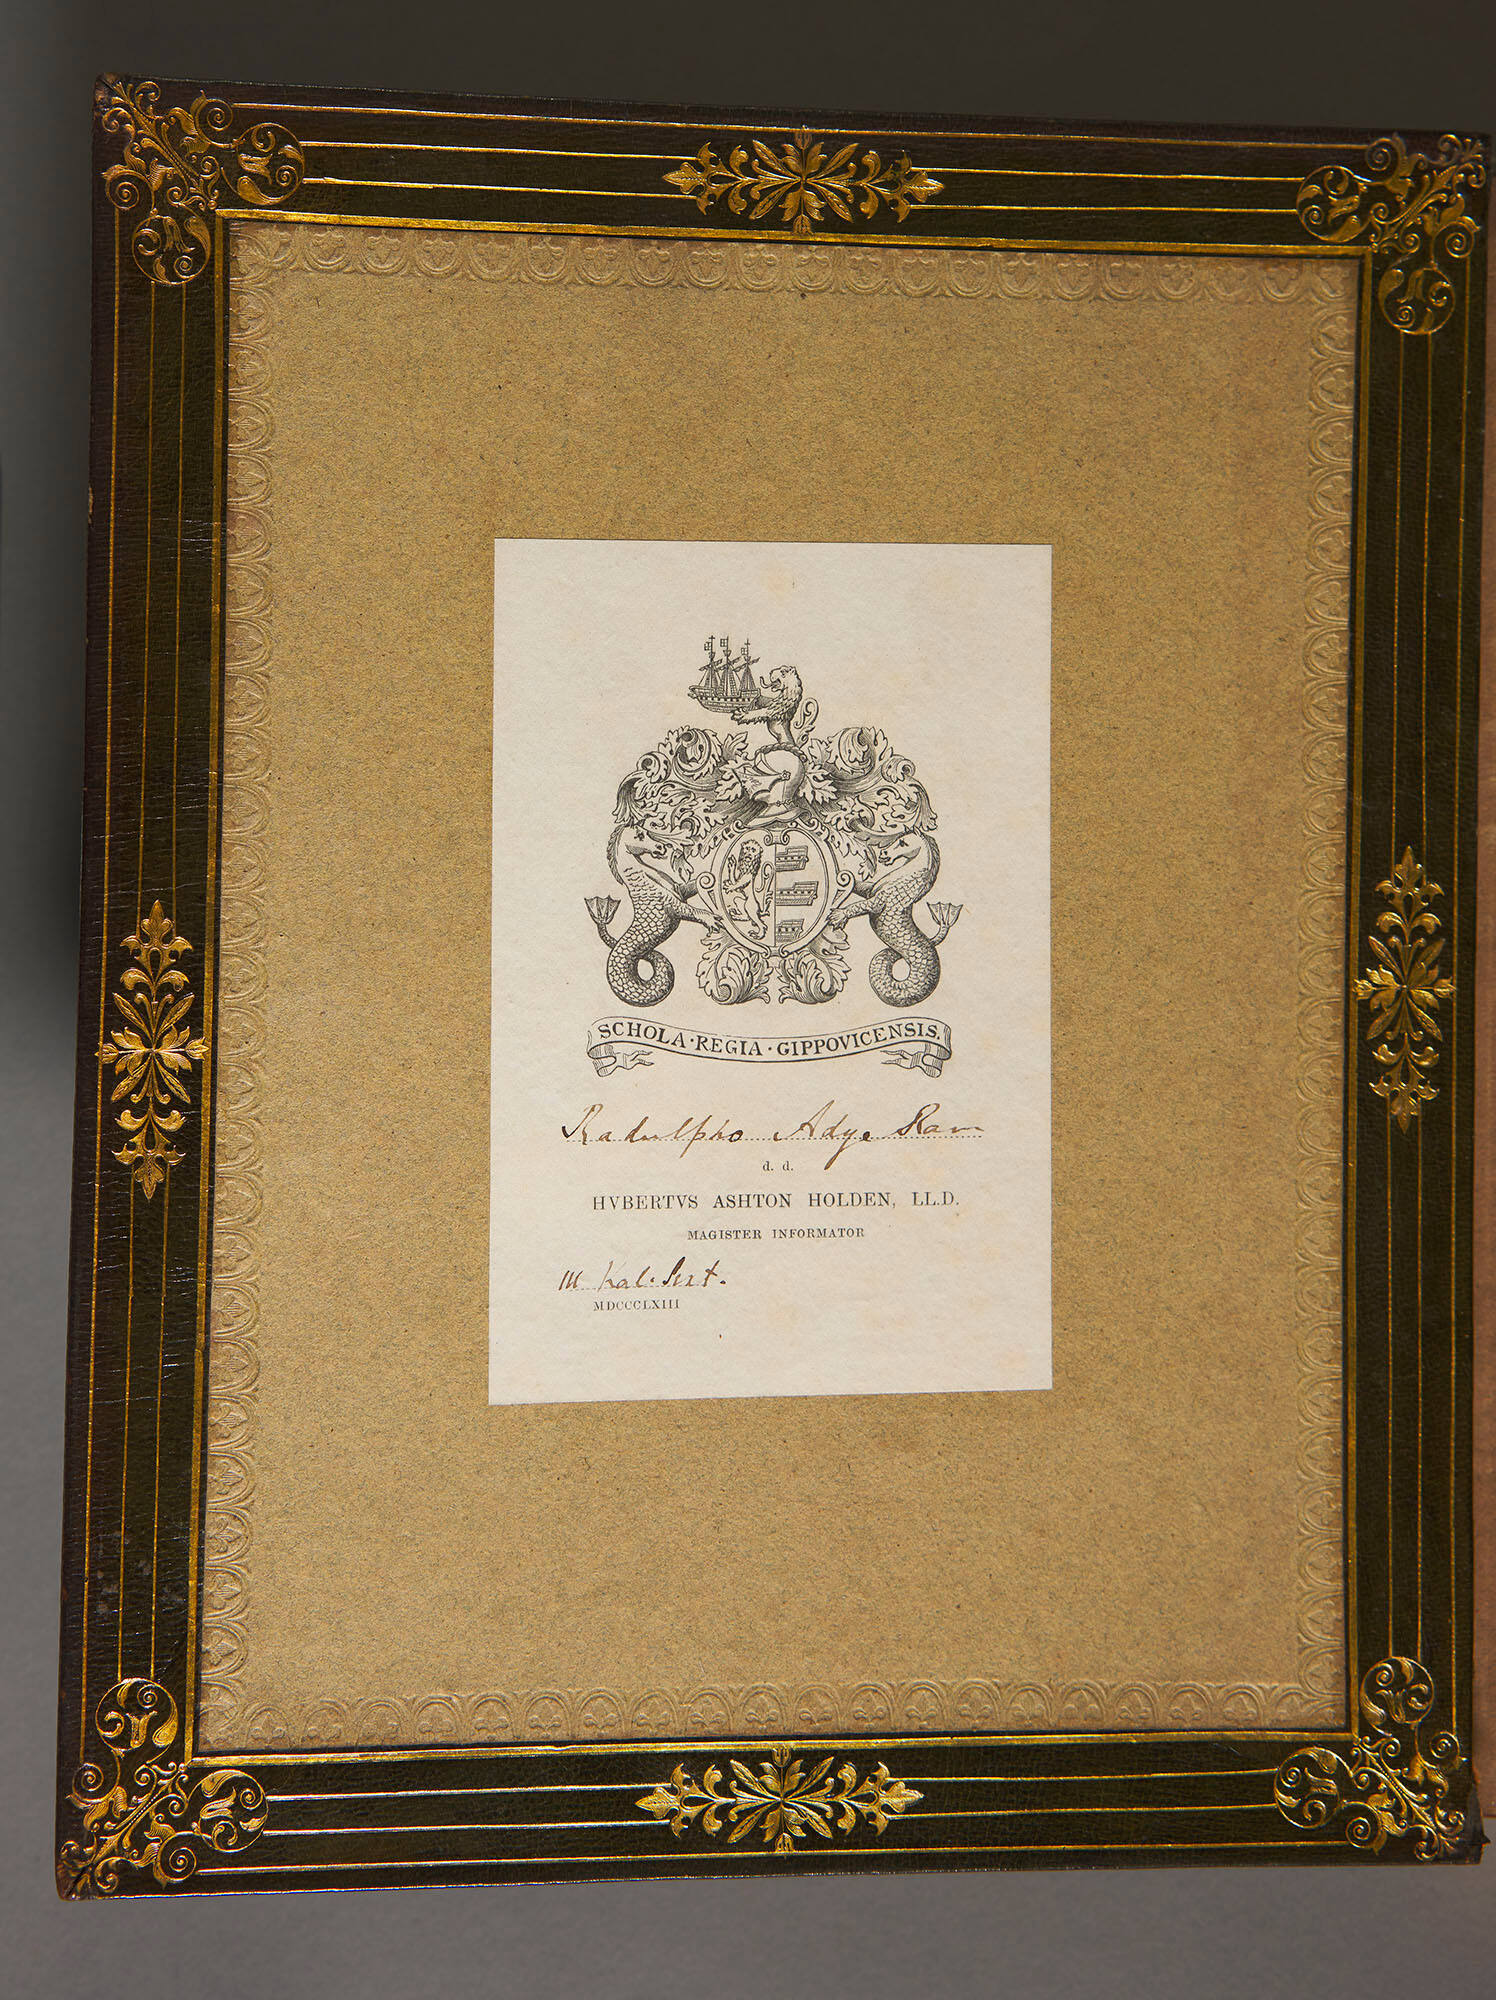 SCHOLA · REGIA · GIPPOVICENSIS.
Radulpho Adye Ram
d. d.
HVBERTVS ASHTON HOLDEN, LL.D.
MAGISTER INFORMATOR
III Kal. Sext.
MDCCCLXIII